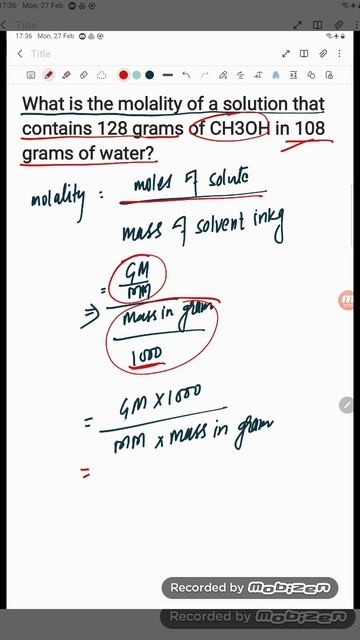 17:36 Mon, 27 Feb
Title
17:36 Mon, 27 Feb
Title
What is the molality of a solution that
contains 128 grams of CH3OH in 108
grams of water?
molality : moles of solute
mass of solvent in kg
= GM
MM
⇒ mass in gram
1000
= GM × 1000
MM × mass in gram
=
Recorded by Mobizen
Recorded by Mobizen